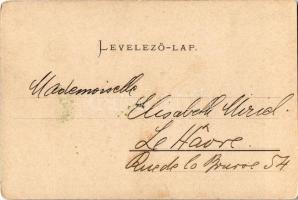 LEVELEZŐ-LAP.
Mademoiselle
Elisabeth
Le Hâvre.
Rue de la Bourse 54